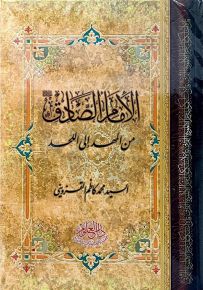 الإمام الصادق
من المهد إلى اللحد
السيد محمد كاظم القزويني